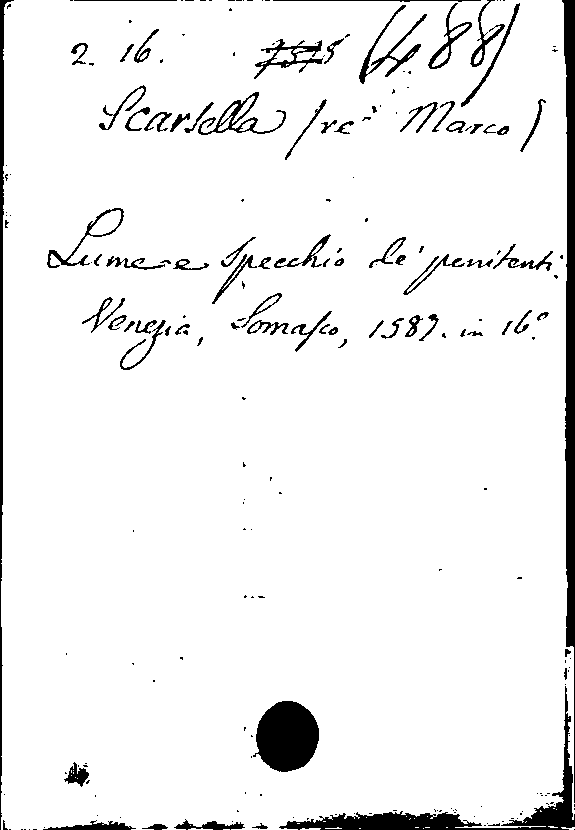 2. 16. (488)
Scarsella (re Marco)
Lume e specchio de' penitenti.
Venezia, Somasco, 1587. in 16.º